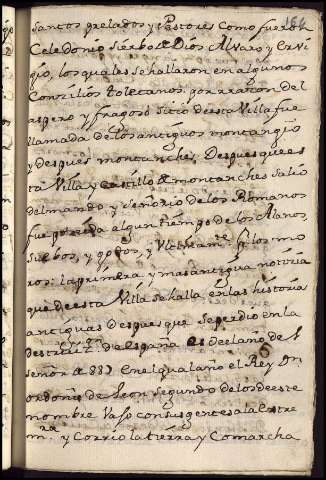 santos prelados y Pastores como fueron
Celedonio Sierbo de Dios Alvaro y Ervi
gio, los quales se hallaron en algunos
Conzilios toletanos. por rraçon del
aspero y fragoso sitio de esta Villa fue
llamada de los antiguos montangio
y despues montanches, Despues que es
ta Villa y Castillo de montanches salio
del mando y señorio de los Romanos
fue poseida algun tiempo de los Alanos,
suebos, y godos, y Vltimam.te p.r los mo
ros: la primera y mas antigua notizia
que de esta Villa se halla en las historias
antiguas despues que se perdio en la
destruiz.n de españa es del año de el
señor de 887 en el qual año el Rey Dn
ordoño de leon segundo de los de este
nombre Vajo con sus gentes a la Estre
m.ra y Corrio la tierra y Comarcha